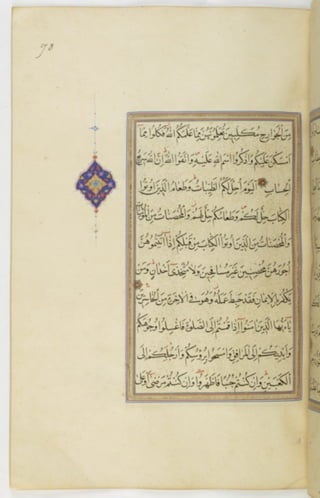 مِنَ الْجَوَارِحِ مُكَلِّبِينَ تُعَلِّمُونَهُنَّ مِمَّا عَلَّمَكُمُ اللَّهُ فَكُلُوا مِمَّا
اَمْسَكْنَ عَلَيْكُمْ وَاذْكُرُوا اسْمَ اللَّهِ عَلَيْهِ وَاتَّقُوا اللَّهَ اِنَّ اللَّهَ سَرِيعُ
الْحِسَابِ اَلْيَوْمَ اُحِلَّ لَكُمُ الطَّيِّبَاتُ وَطَعَامُ الَّذِينَ اُوتُوا
الْكِتَابَ حِلٌّ لَكُمْ وَطَعَامُكُمْ حِلٌّ لَهُمْ وَالْمُحْصَنَاتُ مِنَ الْمُؤْمِنَاتِ
وَالْمُحْصَنَاتُ مِنَ الَّذِينَ اُوتُوا الْكِتَابَ مِنْ قَبْلِكُمْ اِذَا اٰتَيْتُمُوهُنَّ
اُجُورَهُنَّ مُحْصِنِينَ غَيْرَ مُسَافِحِينَ وَلَا مُتَّخِذِى اَخْدَانٍ وَمَنْ
يَكْفُرْ بِالْاِيمَانِ فَقَدْ حَبِطَ عَمَلُهُ وَهُوَ فِى الْاٰخِرَةِ مِنَ الْخَاسِرِينَ
يَا اَيُّهَا الَّذِينَ اٰمَنُوا اِذَا قُمْتُمْ اِلَى الصَّلٰوةِ فَاغْسِلُوا وُجُوهَكُمْ
وَاَيْدِيَكُمْ اِلَى الْمَرَافِقِ وَامْسَحُوا بِرُؤُسِكُمْ وَاَرْجُلَكُمْ اِلَى
الْكَعْبَيْنِ وَاِنْ كُنْتُمْ جُنُبًا فَاطَّهَّرُوا وَاِنْ كُنْتُمْ مَرْضٰى اَوْ عَلٰى